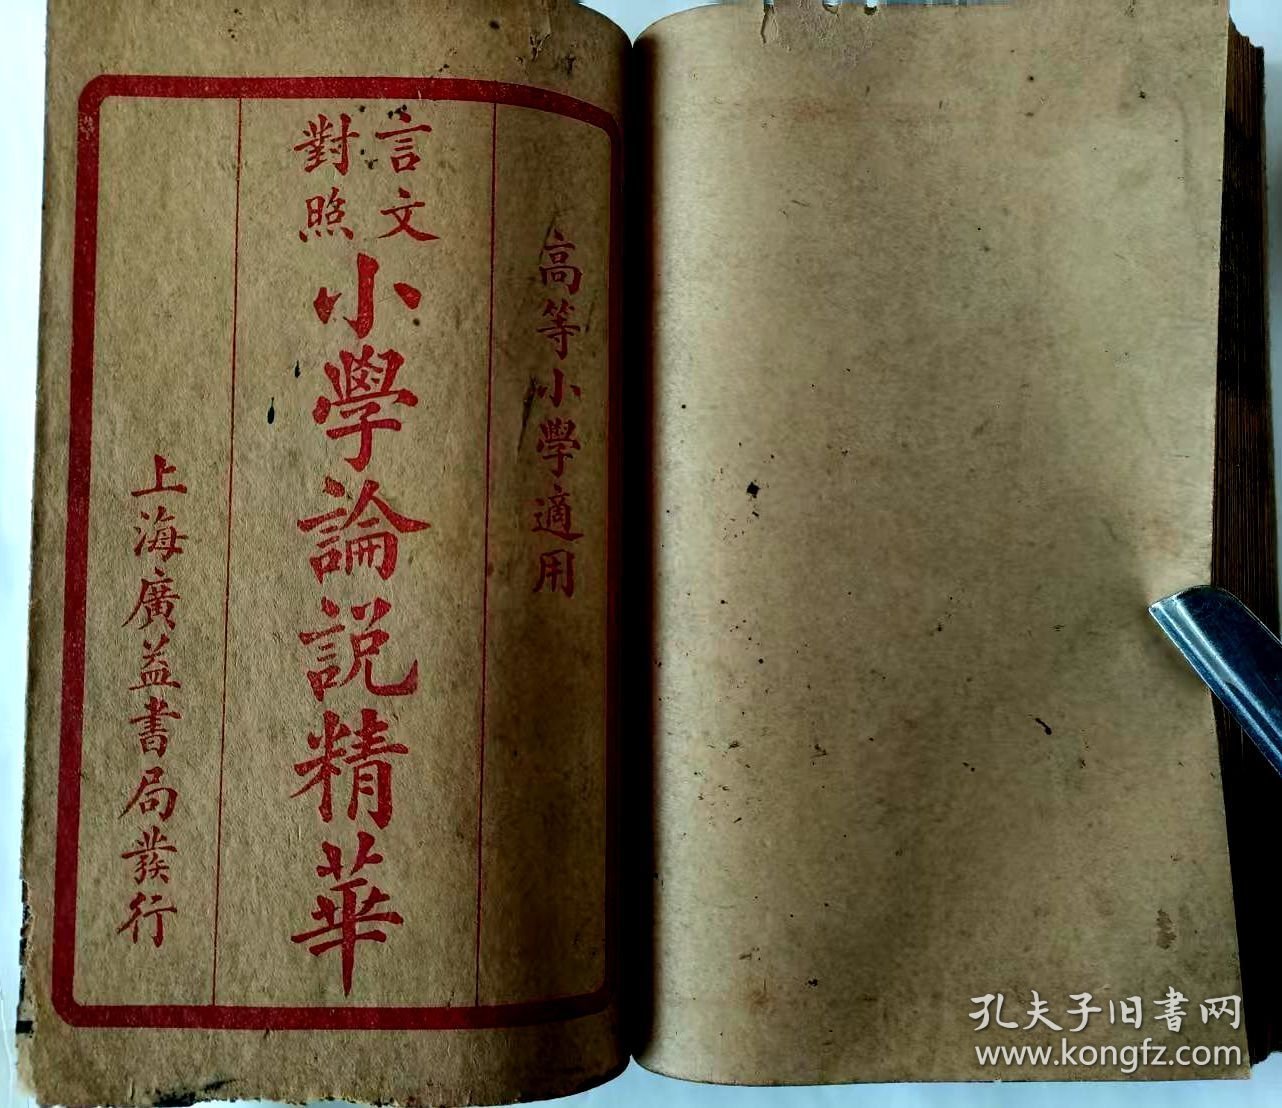 高等小學適用
言文
對照
小學論説精華
上海廣益書局發行
孔夫子旧書网
www.kongfz.com